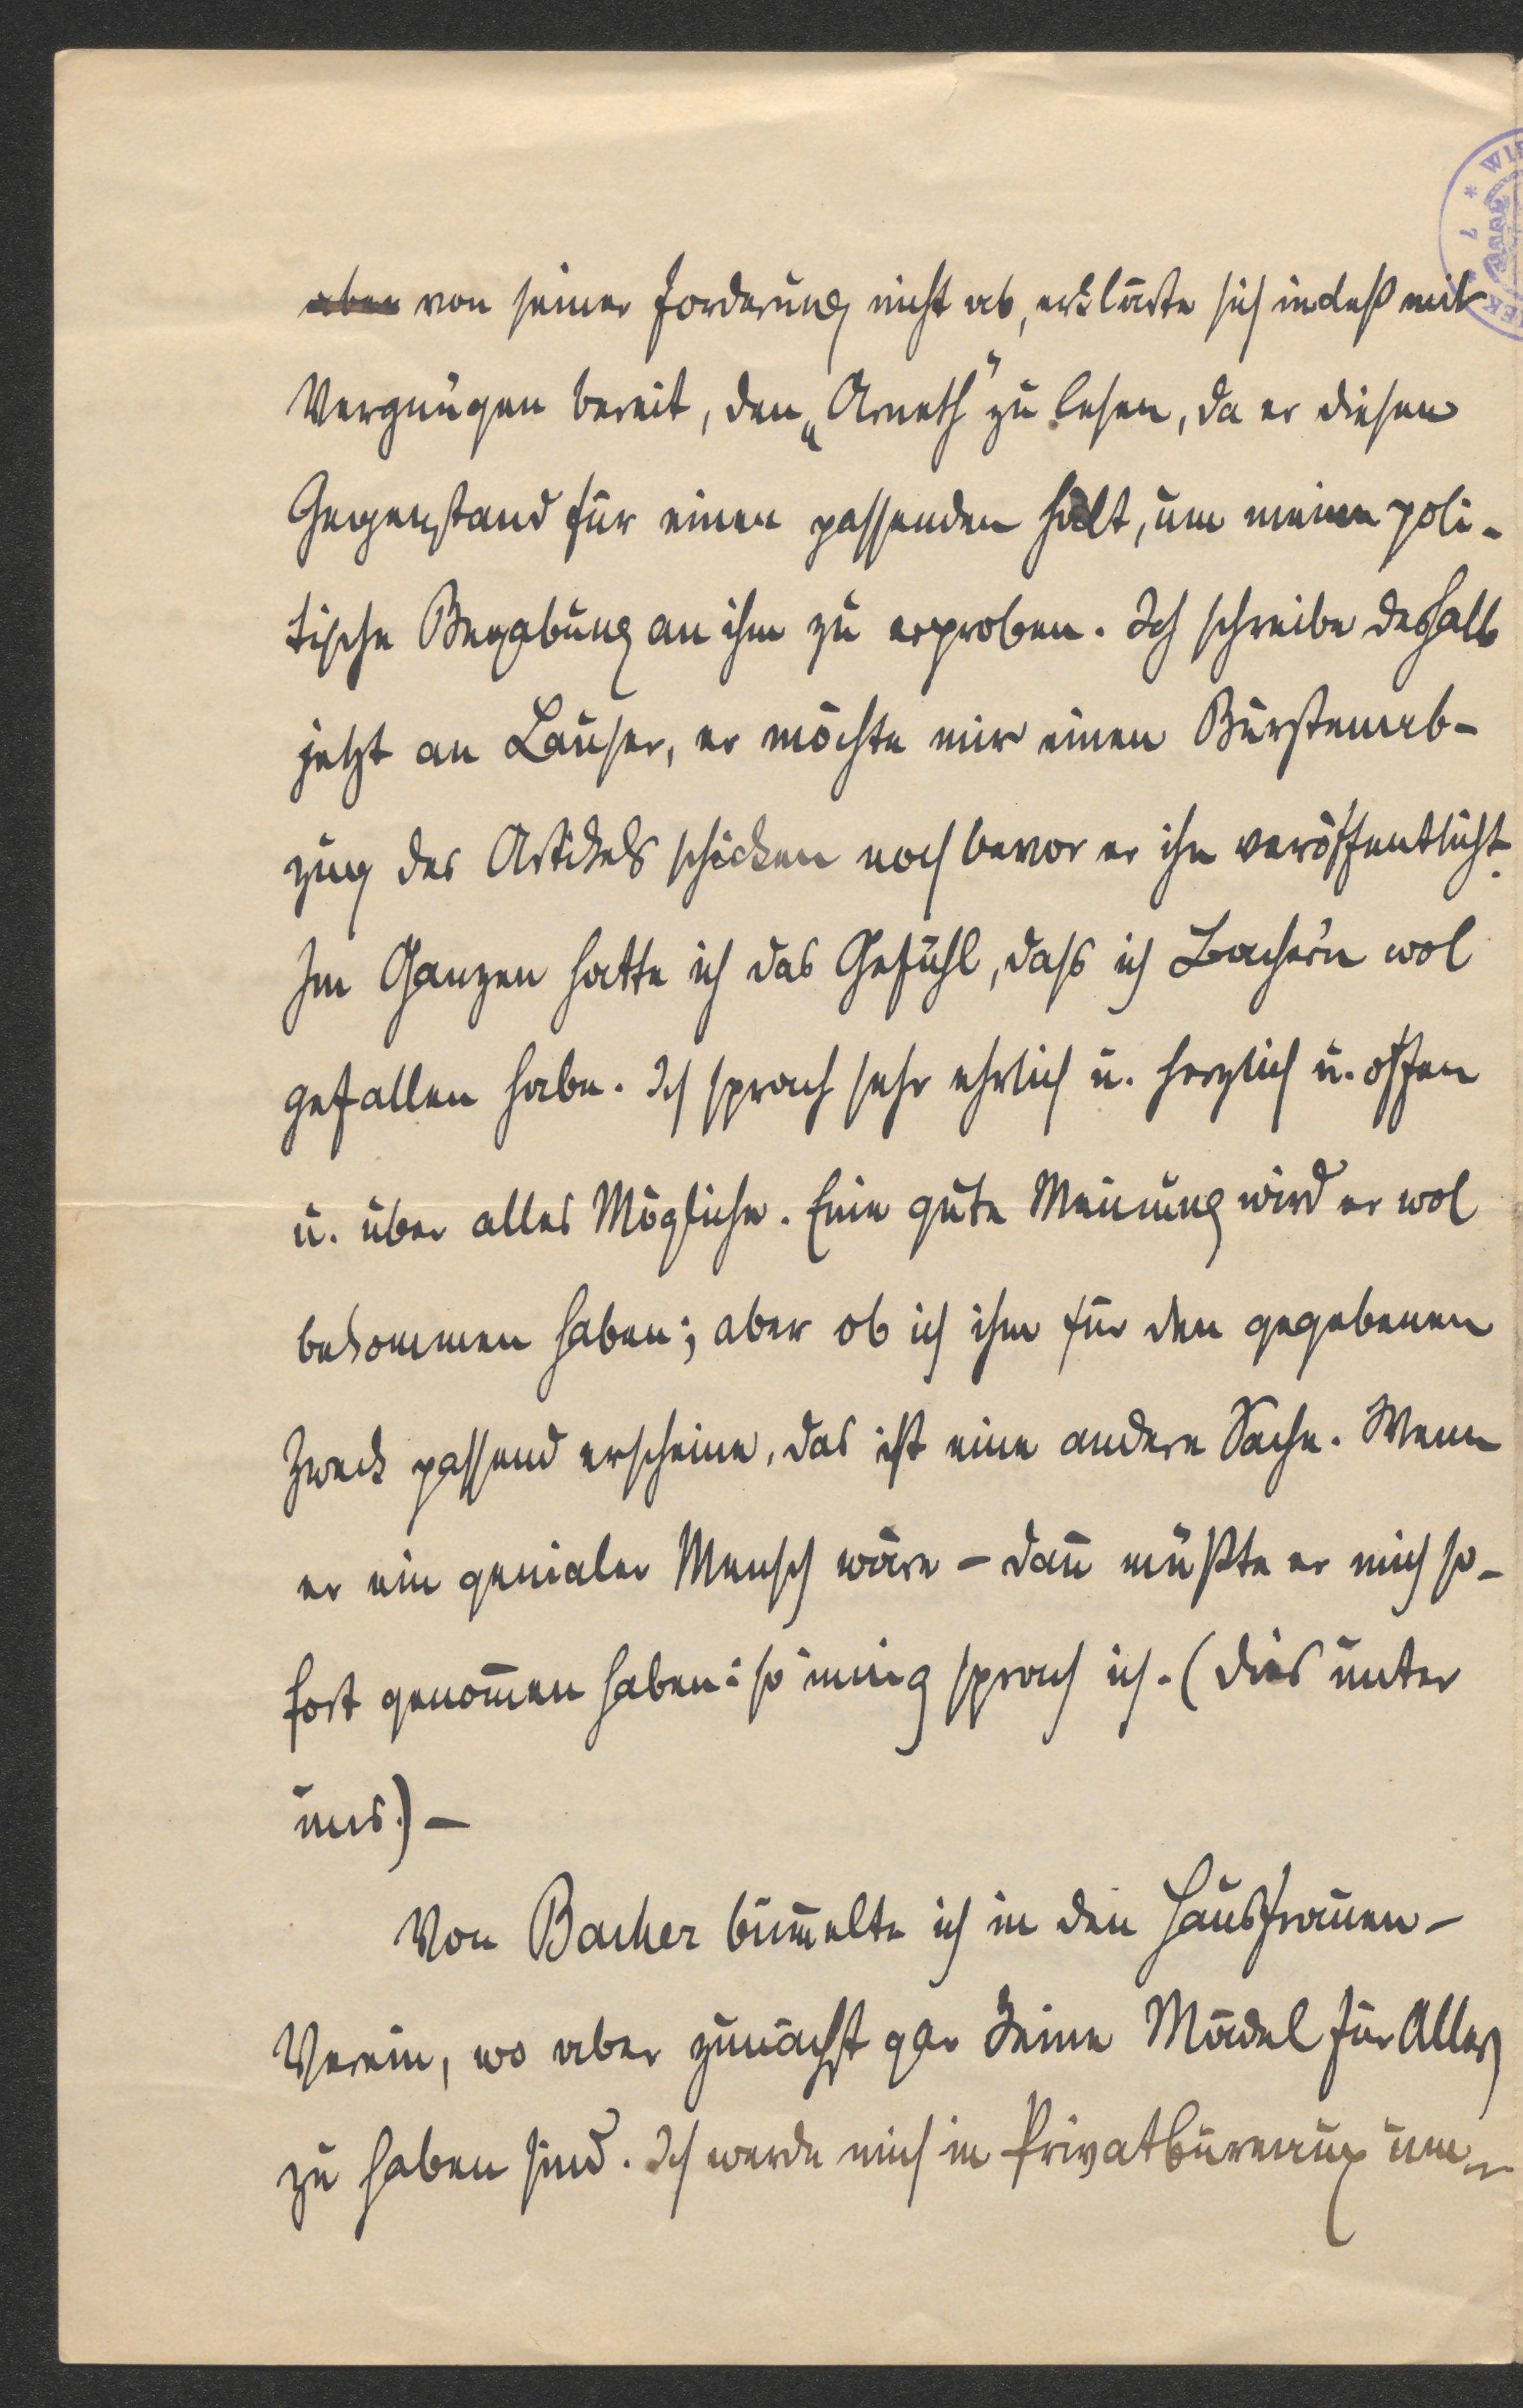 aber von seiner Forderung nicht ab, erklärte sich indeß mit
Vergnügen bereit, den „Arneth" zu lesen, da er diesen
Gegenstand für einen passenden hält, um meine poli-
tische Begabung an ihm zu erproben. Ich schreibe deshalb
jetzt an Lauser, er möchte mir einen Bürstenab-
zug des Artikels schicken noch bevor er ihn veröffentlicht.
Im Ganzen hatte ich das Gefühl, dass ich Bacher'n wol
gefallen habe. Ich sprach sehr ehrlich u. herzlich u. offen
u. über alles Mögliche. Eine gute Meinung wird er wol
bekommen haben; aber ob ich ihm für den gegebenen
Zweck passend erscheine, das ist eine andere Sache. Wenn
er ein genialer Mensch wäre – dan̅ müßte er mich so-
fort genom̅en haben: so innig sprach ich. (Dies unter
uns.) –
Von Bacher bum̅elte ich in den Hausfrauen-
Verein, wo aber zunächst gar keine Mädel für Alles
zu haben sind. Ich werde mich in Privatbureaux um-
WIE
7